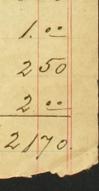 1.00
2 50
2 00
21 70